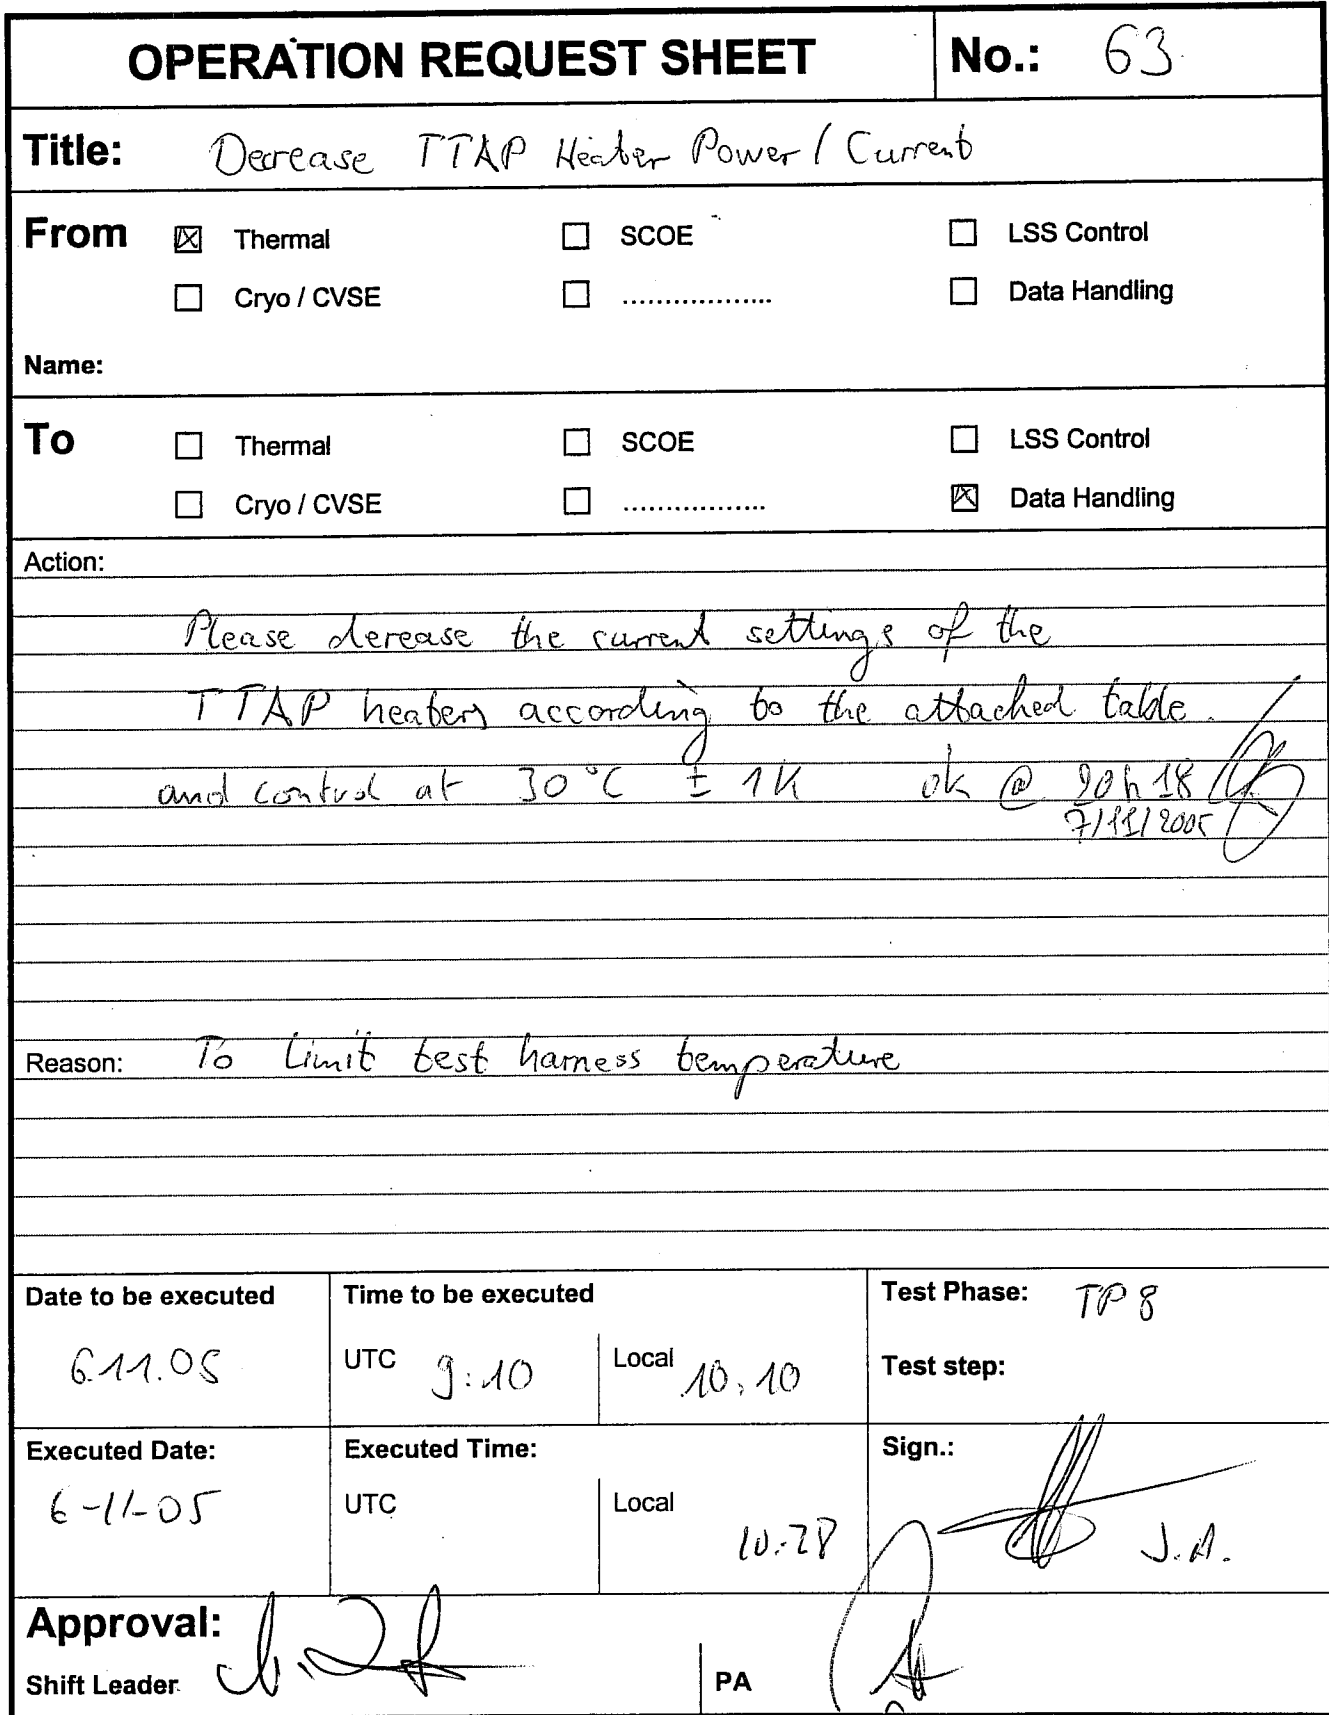 OPERATION REQUEST SHEET No.: 63
Title: Decrease TTAP Heater Power / Current
From ☒ Thermal ☐ SCOE ☐ LSS Control
☐ Cryo / CVSE ☐ .................. ☐ Data Handling
Name:
To ☐ Thermal ☐ SCOE ☐ LSS Control
☐ Cryo / CVSE ☐ ................. ☒ Data Handling
Action:
Please derease the current settings of the
TTAP heaters according to the attached table.
and control at 30°C ± 1K ok @ 20h18
7/11/2005
Reason: To Limit test harness temperature
Date to be executed Time to be executed Test Phase: TP 8
6.11.05 UTC 9:10 Local 10:10 Test step:
Executed Date: Executed Time: Sign.:
6-11-05 UTC Local 10:28 J.A.
Approval:
Shift Leader PA